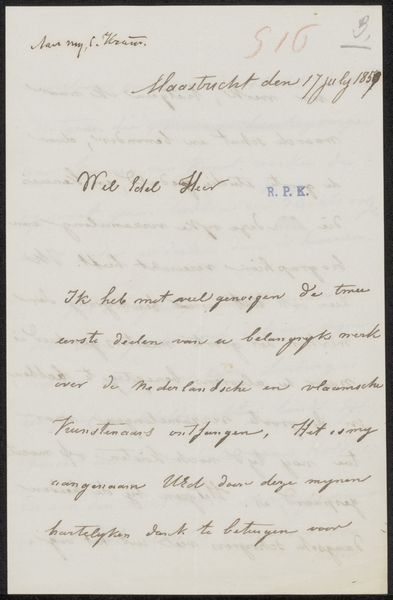 Aan mij, C. Kramm.
516
3.
Maastricht den 17 july 1859
Wel Edel Heer
R. P. K.
Ik heb met veel genoegen de twee
eerste deelen van u belangryk werk
over de Nederlandsche en vlaamsche
Kunstenaars ontfangen, Het is my
aangenaam UEd door deze mynen
hartelyken dank te betuigen voor